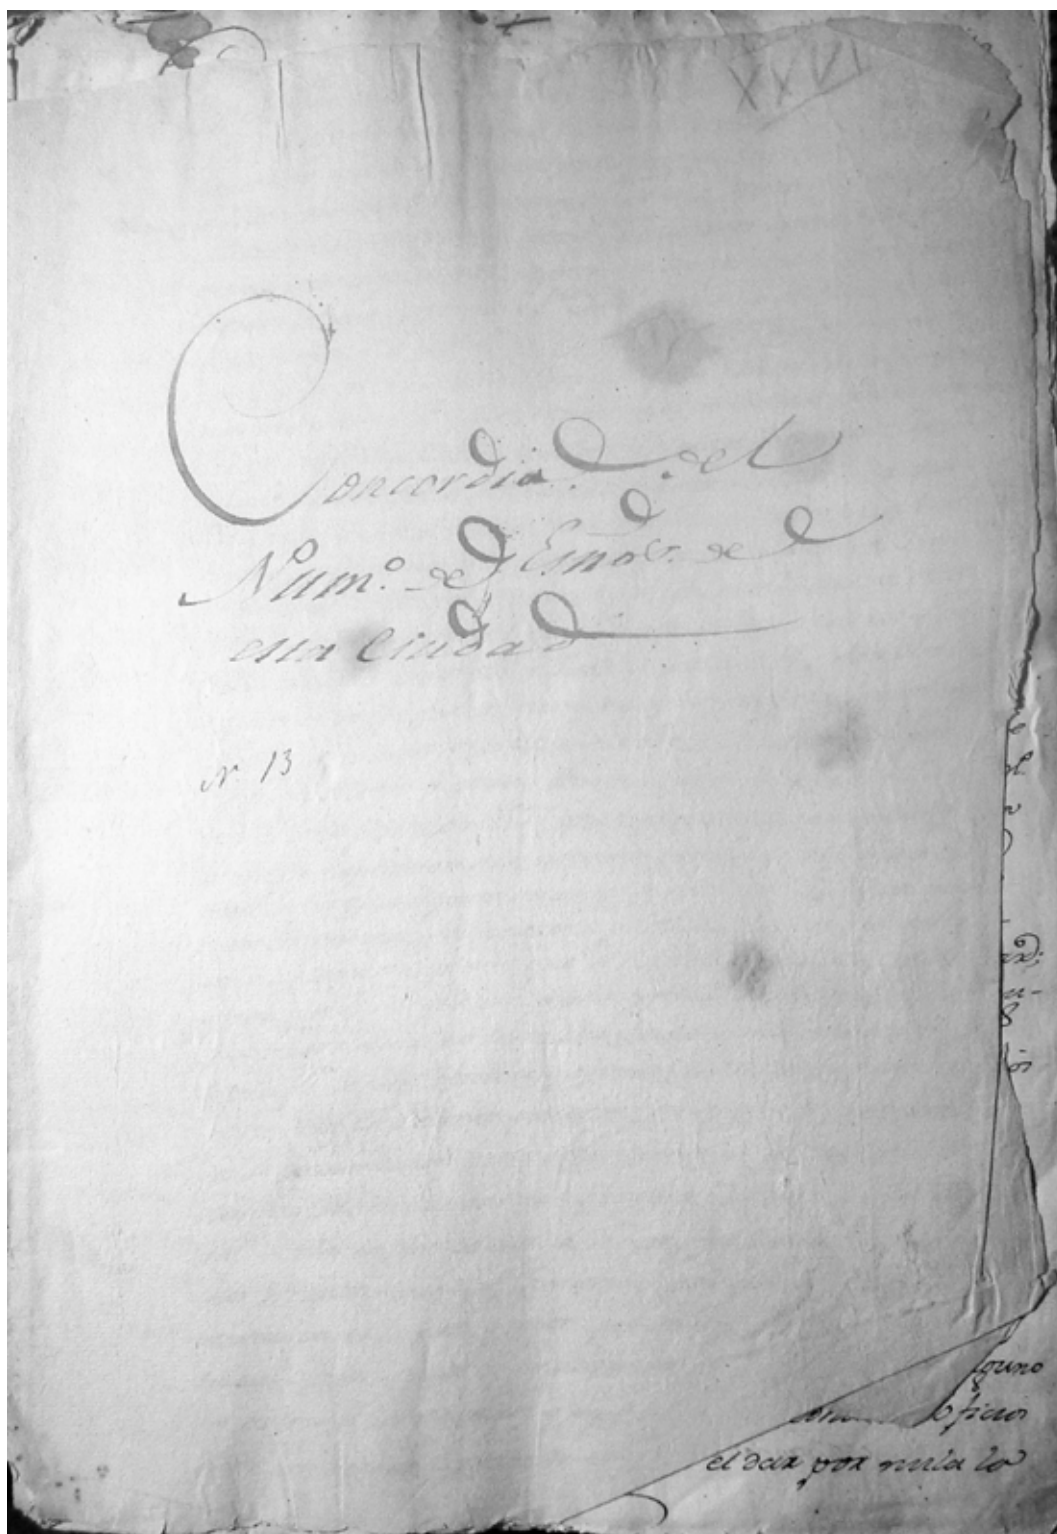 XXVI
Concordia del
Num.º de Essnos. de
esta Ciudad
N. 13
oficios
el dar por nula lo